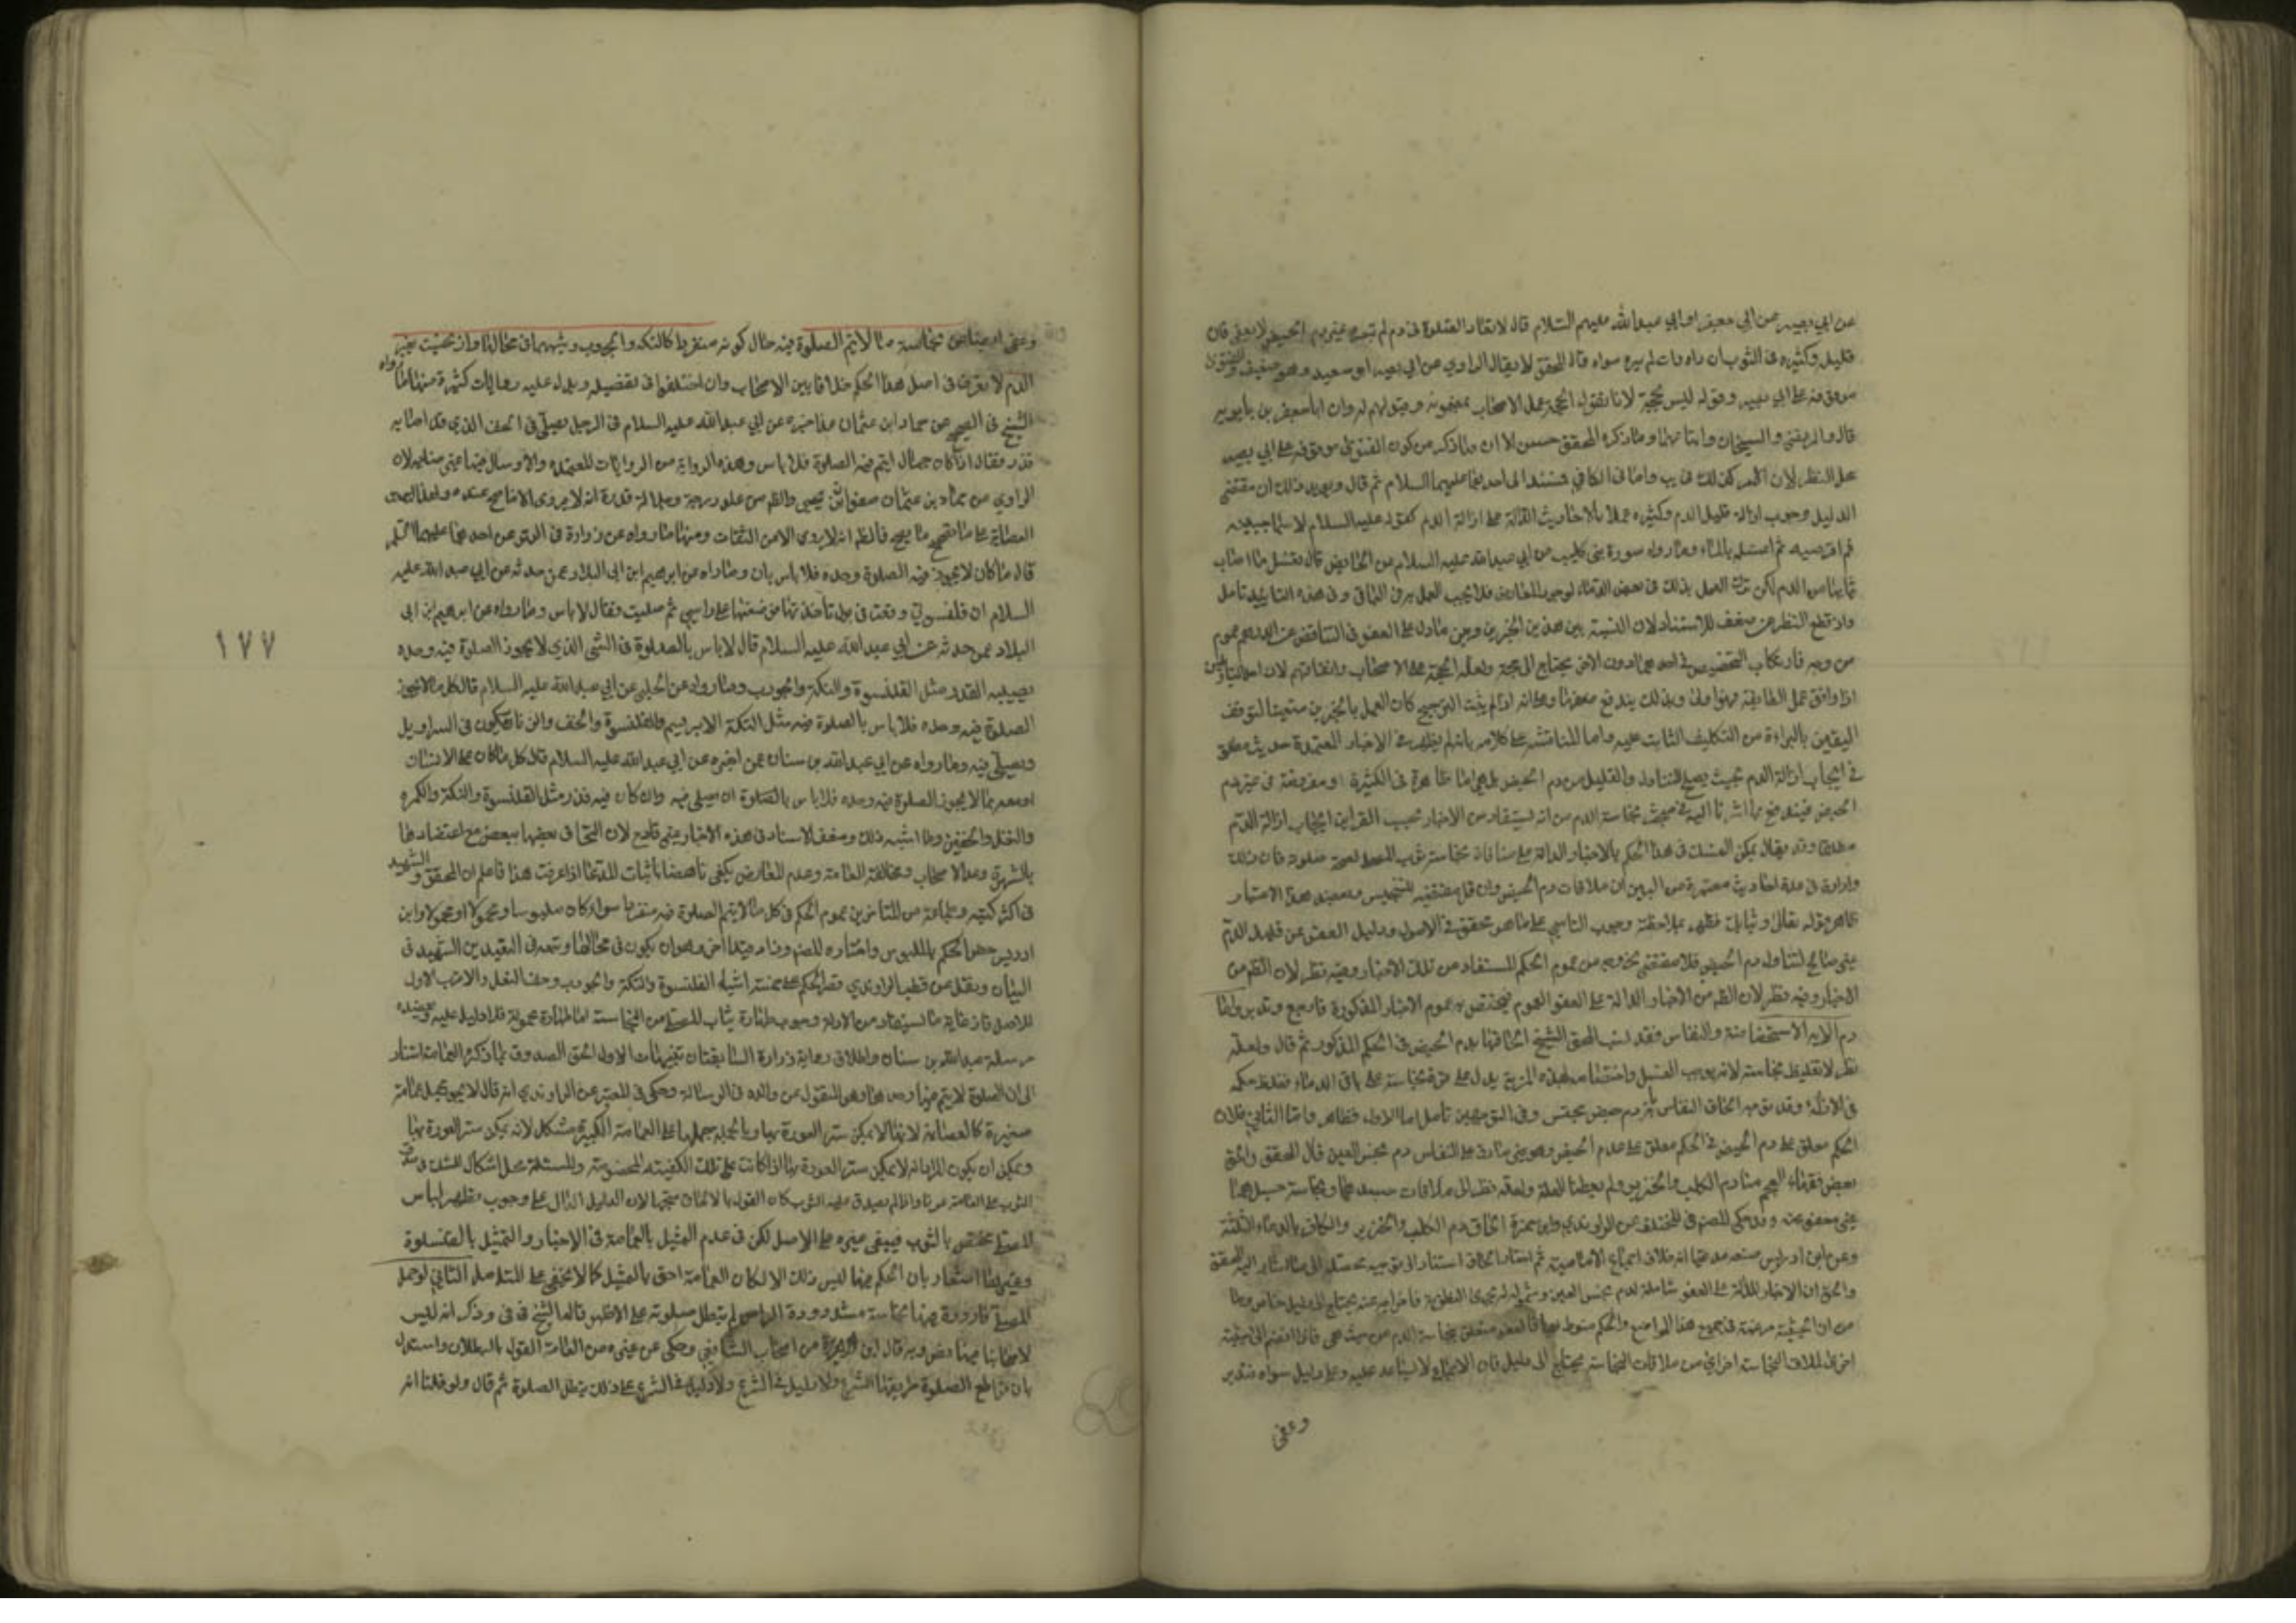 عن ابي بصير عن ابي جعفر او ابي عبد الله عليهم السلام قال لا تعاد الصلوة من دم لم تبصره غير دم الحيض لا يعفى فان
قليله وكثيره في الثوب ان راه وان لم يره سواء قال المحقق لا يقال الراوي عن ابي بصير ابو سعيد وهو ضعيف والفتوى
موقوفة على ابي بصير وقوله ليس بحجة لانا نقول الحجة عمل الاصحاب بمضمونه وقبولهم له وان ابا جعفر بن بابويه
قاله والمرتضى والشيخان واتباعهما وما ذكره المحقق حسن الا ان ما ذكره من كون الفتوى موقوفة على ابي بصير
محل النظر لان كذلك في يب واما في الكافي فمسند الى احدهما عليهما السلام ثم قال ويؤيد ذلك ان مقتضى
الدليل وجوب ازالة قليل الدم وكثيره عملا بالاحاديث الدالة على ازالة الدم كقوله عليه السلام لاسماء حتيه
ثم اقرصيه ثم اغسليه بالماء وما رواه سورة بن كليب عن ابي عبد الله عليه السلام عن الحائض قال تغسل ما اصاب
ثيابها من الدم لكن ترك العمل بذلك في بعض الدماء لوجود المعارض فلا يجب العمل به في الباقي وفي هذه التاييد تامل
ولو قطع النظر عن ضعف الاستناد لان النسبة بين هذين الخبرين وبين ما دل على العفو في الناقص عن الدرهم عموم
من وجه فارتكاب التخصيص في احدهما دون الاخر يحتاج الى حجة ولعله الحجة عمل الاصحاب واتفاقهم لان احد
اذا وافق عمل الطائفة فهو اولى وبذلك يندفع ضعفها وعلى انه لو لم يثبت الترجيح كان العمل بالخبرين متعينا لتوقف
اليقين بالبراءة من التكليف الثابت عليه واما المناقشة على كلامه بانه لم يظهر في الاخبار المعتمدة حديث مطلق
في ايجاب ازالة الدم بحيث يصلح للتناول والقليل من دم الحيض بل هي اما ظاهرة في الكثيرة او مفروضة في غير دم
الحيض فيندفع بما اشرنا اليه في مبحث نجاسة الدم من انه يستفاد من الاخبار بحسب القراين ايجاب ازالة الدم
مطلقا وقد يقال يمكن التمسك في هذا الحكم بالاخبار الدالة على منافاة نجاسة ثوب المصلى لصحة صلوته فان ذلك
وارادة في عدة احاديث معتبرة من البين ان ملاقات دم الحيض وان قل مقتضيه للتنجيس ويعضد هذا الاعتبار
ظاهر قوله تعالى وثيابك فطهر بملاحظة وجوب التاسي على ما هو تحقق في الاصول ودليل العفو عن قليل الدم
غير صالح لتناول دم الحيض فلا مقتضي لخروجه من عموم الحكم المستفاد من تلك الاخبار وفيه نظر لان الظ من
الاخبار وفيه نظر لان الظ من الاخبار الدالة على العفو العموم فيختص به عموم الاخبار المذكورة فارجع وتدبر واما
دم الاستحاضة والنفاس فقد نسب المحقق الشيخ الحاقها بدم الحيض في الحكم المذكور ثم قال ولعله
نظر الا تغليظ نجاسته لانه يوجب الغسل واختصاصه بهذه المزية يدل على قوة نجاسته على باقي الدماء فغلظ حكمه
في الازالة وقد يوجه الحاق النفاس بانه دم حيض يحبس وفي التوجيهين تامل اما الاول فظاهر واما الثاني فلان
الحكم معلق على دم الحيض في الحكم معلق على دم الحيض وهو غير صادق على النفاس دم نجس العين قال المحقق والحق
بعض فقهاء العجم منا دم الكلب والخنزير ولم يعطنا العلة ولعله نظر الى ملاقات جسدهما ونجاسة جسدهما
غير معفو عنه وقد حكى المص في المختلف عن الراوندي وابن حمزة الحاق دم الكلب والخنزير والكافر بالدماء الثلثة
وعن ابن ادريس منعه مدعيا انه خلاف اجماع الامامية ثم اختار الحاق استنادا الى توجيه محصله الى ما اشار اليه المحقق
والحق ان الاخبار الدالة على العفو شاملة لدم نجس العين وشموله لم يجدي المطلوب فاخراجه عنه يحتاج الى دليل خاص وما
من ان الحيثية مرعية في جميع هذا المواضع والحكم منوط بها فالعفو متعلق بنجاسة الدم من حيث هي فاذا انضم الى حيثية
اخرى لملاقات النجاسة اخرى من ملاقات النجاسة يحتاج الى دليل فان الاجماع لا يساعد عليه وعلى دليل سواه فتدبر
وعفى
وعفى ايضا عن نجاسة ما لا يتم الصلوة فيه حال كونه منفردا كالتكة والجورب وشبههما في محالها وان نجست بغير
الدم لا نعرف في اصل هذا الحكم خلافا بين الاصحاب وان اختلفوا في تفصيله ويدل عليه روايات كثيرة منها ما رواه
الشيخ في الصحيح عن حماد ابن عثمان عمن اخبره عن ابي عبد الله عليه السلام في الرجل يصلي في الخف الذي قد اصابه
قذر فقال اذا كان مما لا يتم فيه الصلوة فلا باس وهذه الرواية من الروايات المعتمدة والارسال فيها غير ضاير لان
الراوي عن حماد بن عثمان صفوان بن يحيى والظ من علو درجته وجلالة قدره انه لا يروي الا ما صح عنده
العصابة على ما تصحيح ما يصح فالظ انه لا يروي الا عن الثقات ومنها ما رواه عن زرارة في الموثق عن احدهما عليهما السلم
قال ما كان لا يجوز فيه الصلوة وحده فلا باس بان وما رواه عن ابرهيم ابن ابي البلاد عمن حدثه عن ابي عبد الله عليه
السلام ان قلنسوتي وقعت في بول فاخذتها فوضعتها على راسي ثم صليت فقال لا باس وما رواه عن ابرهيم بن ابي
البلاد عمن حدثه عن ابي عبد الله عليه السلام قال لا باس بالصلوة في الشئ الذي لا يجوز الصلوة فيه وحده
يصيبه القذر مثل القلنسوة والتكة والجورب وما رواه عن الحلبي عن ابي عبد الله عليه السلام قال كل ما لا يجوز
الصلوة فيه وحده فلا باس بالصلوة فيه مثل التكة الابريسم والقلنسوة والخف والزنار يكون في السراويل
ويصلى فيه وما رواه عن ابي عبد الله بن سنان عمن اخبره عن ابي عبد الله عليه السلام قال كل ما كان على الانسان
او معه مما لا يجوز الصلوة فيه وحده فلا باس بالصلوة ان يصلى فيه وان كان فيه قذر مثل القلنسوة والتكة والكمرة
والنعل والخفين وما اشبه ذلك وضعف الاسناد في هذه الاخبار غير قادح لان التحاق بعضها ببعض مع اعتضادها
بالشهرة وعمل الاصحاب ومخالفة العامة وعدم المعارض يكفي ناهضا باثبات المدعا اذا عرفت هذا فاعلم ان المحقق والشهيد
في اكثر كتبه وجماعة من المتاخرين عموم الحكم في كل ما لا يتم الصلوة فيه منفردا سواء كان ملبوسا ومحمولا او محمولا وابن
ادريس خص الحكم بالملبوس واختاره المص وزاد قيدا اخر وهو ان يكون في محالها وتبعه في القيدين الشهيد في
البيان ونقل عن قطب الراوندي قصر الحكم على خمسة اشياء القلنسوة والتكة والجورب وخف النعل والاقرب الاول
للاصل فان غاية ما يستفاد من الادلة وجوب طهارة ثياب المصلي من النجاسة اما طهارة محموله فلا دليل عليه ويعضده
مرسلة عبد الله بن سنان واطلاق رواية زرارة السابقتان تنبيهات الاول الحق الصدوق بما ذكر العمامة استنادا
الى ان الصلوة لا يتم فيها وحدها وهو المنقول عن والده في الرسالة وحكى في المعتبر عن الراوندي انه قال لا يجوز يحمل عمامة
صغيرة كالعصابة لانها لا يمكن ستر العورة بها وبالجملة حملها على العمامة الكبيرة مشكل لانه يمكن ستر العورة بها
ويمكن ان يكون المراد انه لا يمكن ستر العورة بها اذا كانت على تلك الكيفية المخصوصة والمسئلة محل اشكال للشك في صدق
الثوب على العمامة عرفا واذا لم يصدق عليه الثوب كان القول بالالحاق متجها لان الدليل الدال على وجوب تطهير لباس
المصلي مختص بالثوب فيبقى غيره على الاصل لكن في عدم التمثيل بالعمامة في الاخبار والتمثيل بالقلنسوة
وغيرها اشعار بان الحكم فيها ليس ذلك الا لكان العمامة احق بالتمثيل كما لا يخفى على المتامل الثاني لو حمل
المصلي قارورة فيها نجاسة مشدودة الراس لم يبطل صلوته على الاظهر قاله الشيخ في ف وذكر انه ليس
لاصحابنا فيها نص وبه قال ابن ابي هريرة من اصحاب الشافعي وحكى عن غيره من العامة القول بالبطلان واستدل
بان قواطع الصلوة طريقها الشرع ولا دليل في الشرع ولا دليل في الشرع على ذلك يبطل الصلوة ثم قال ولو قلنا انه
١٧٧